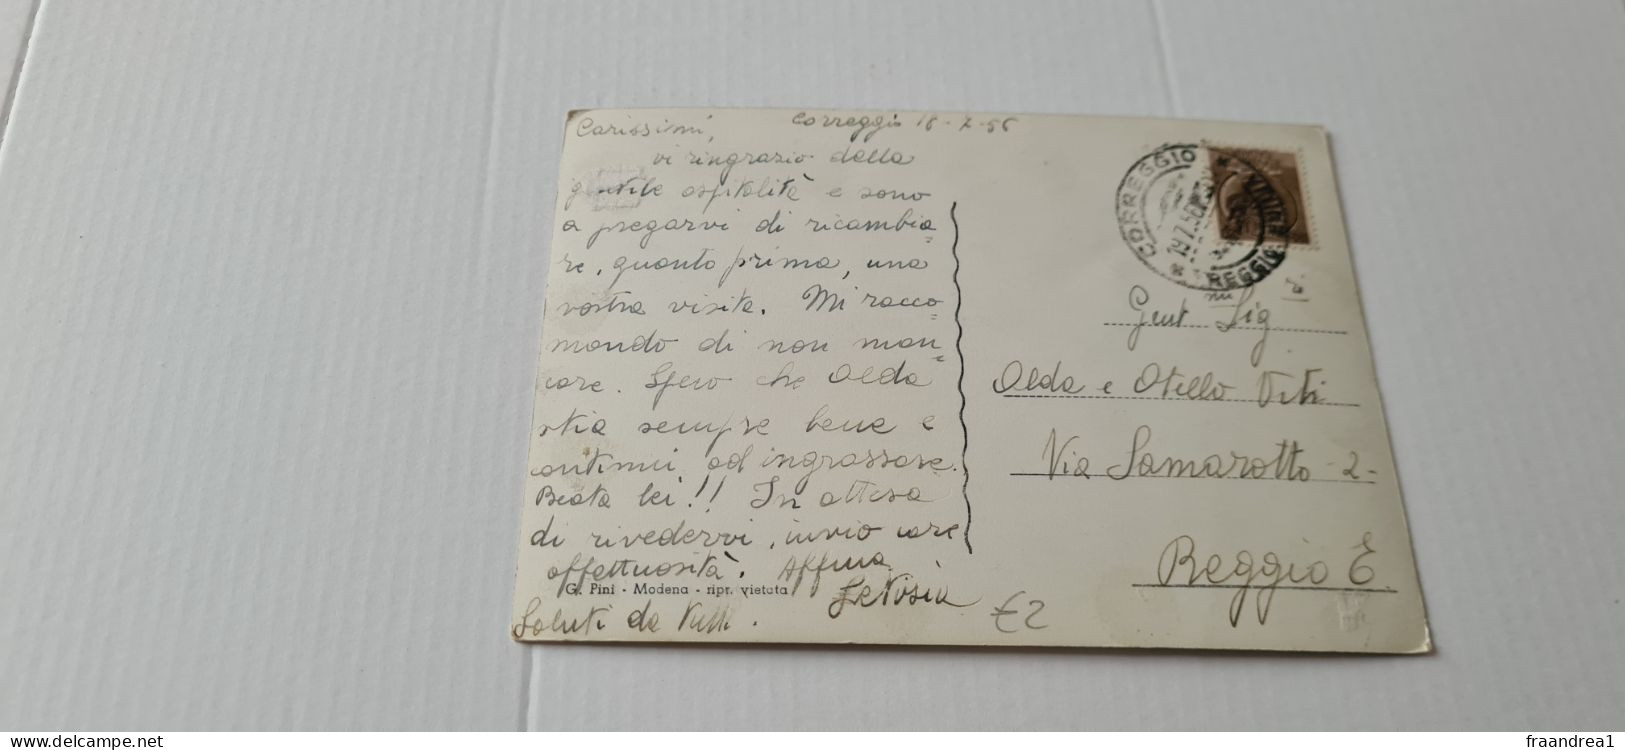 Correggio 18-7-56
Carissimi,
vi ringrazio della
gentile ospitalità e sono
a pregarvi di ricambia=
re, quanto prima, una
vostra visita. Mi racco=
mando di non man=
care. Spero che Alda
stia sempre bene e
continui ad ingrassare.
Beata lei!! In attesa
di rivedervi, invio care
affettuosità. Aff.ma
G. Pini - Modena - ripr. vietata
Saluti da
CORREGGIO
19.7.56
REGGIO
Gent.mi Sig.
Alda e Otello Viti
Via Samarotto -2-
Reggio E.
€2
www.delcampe.net
fraandrea1